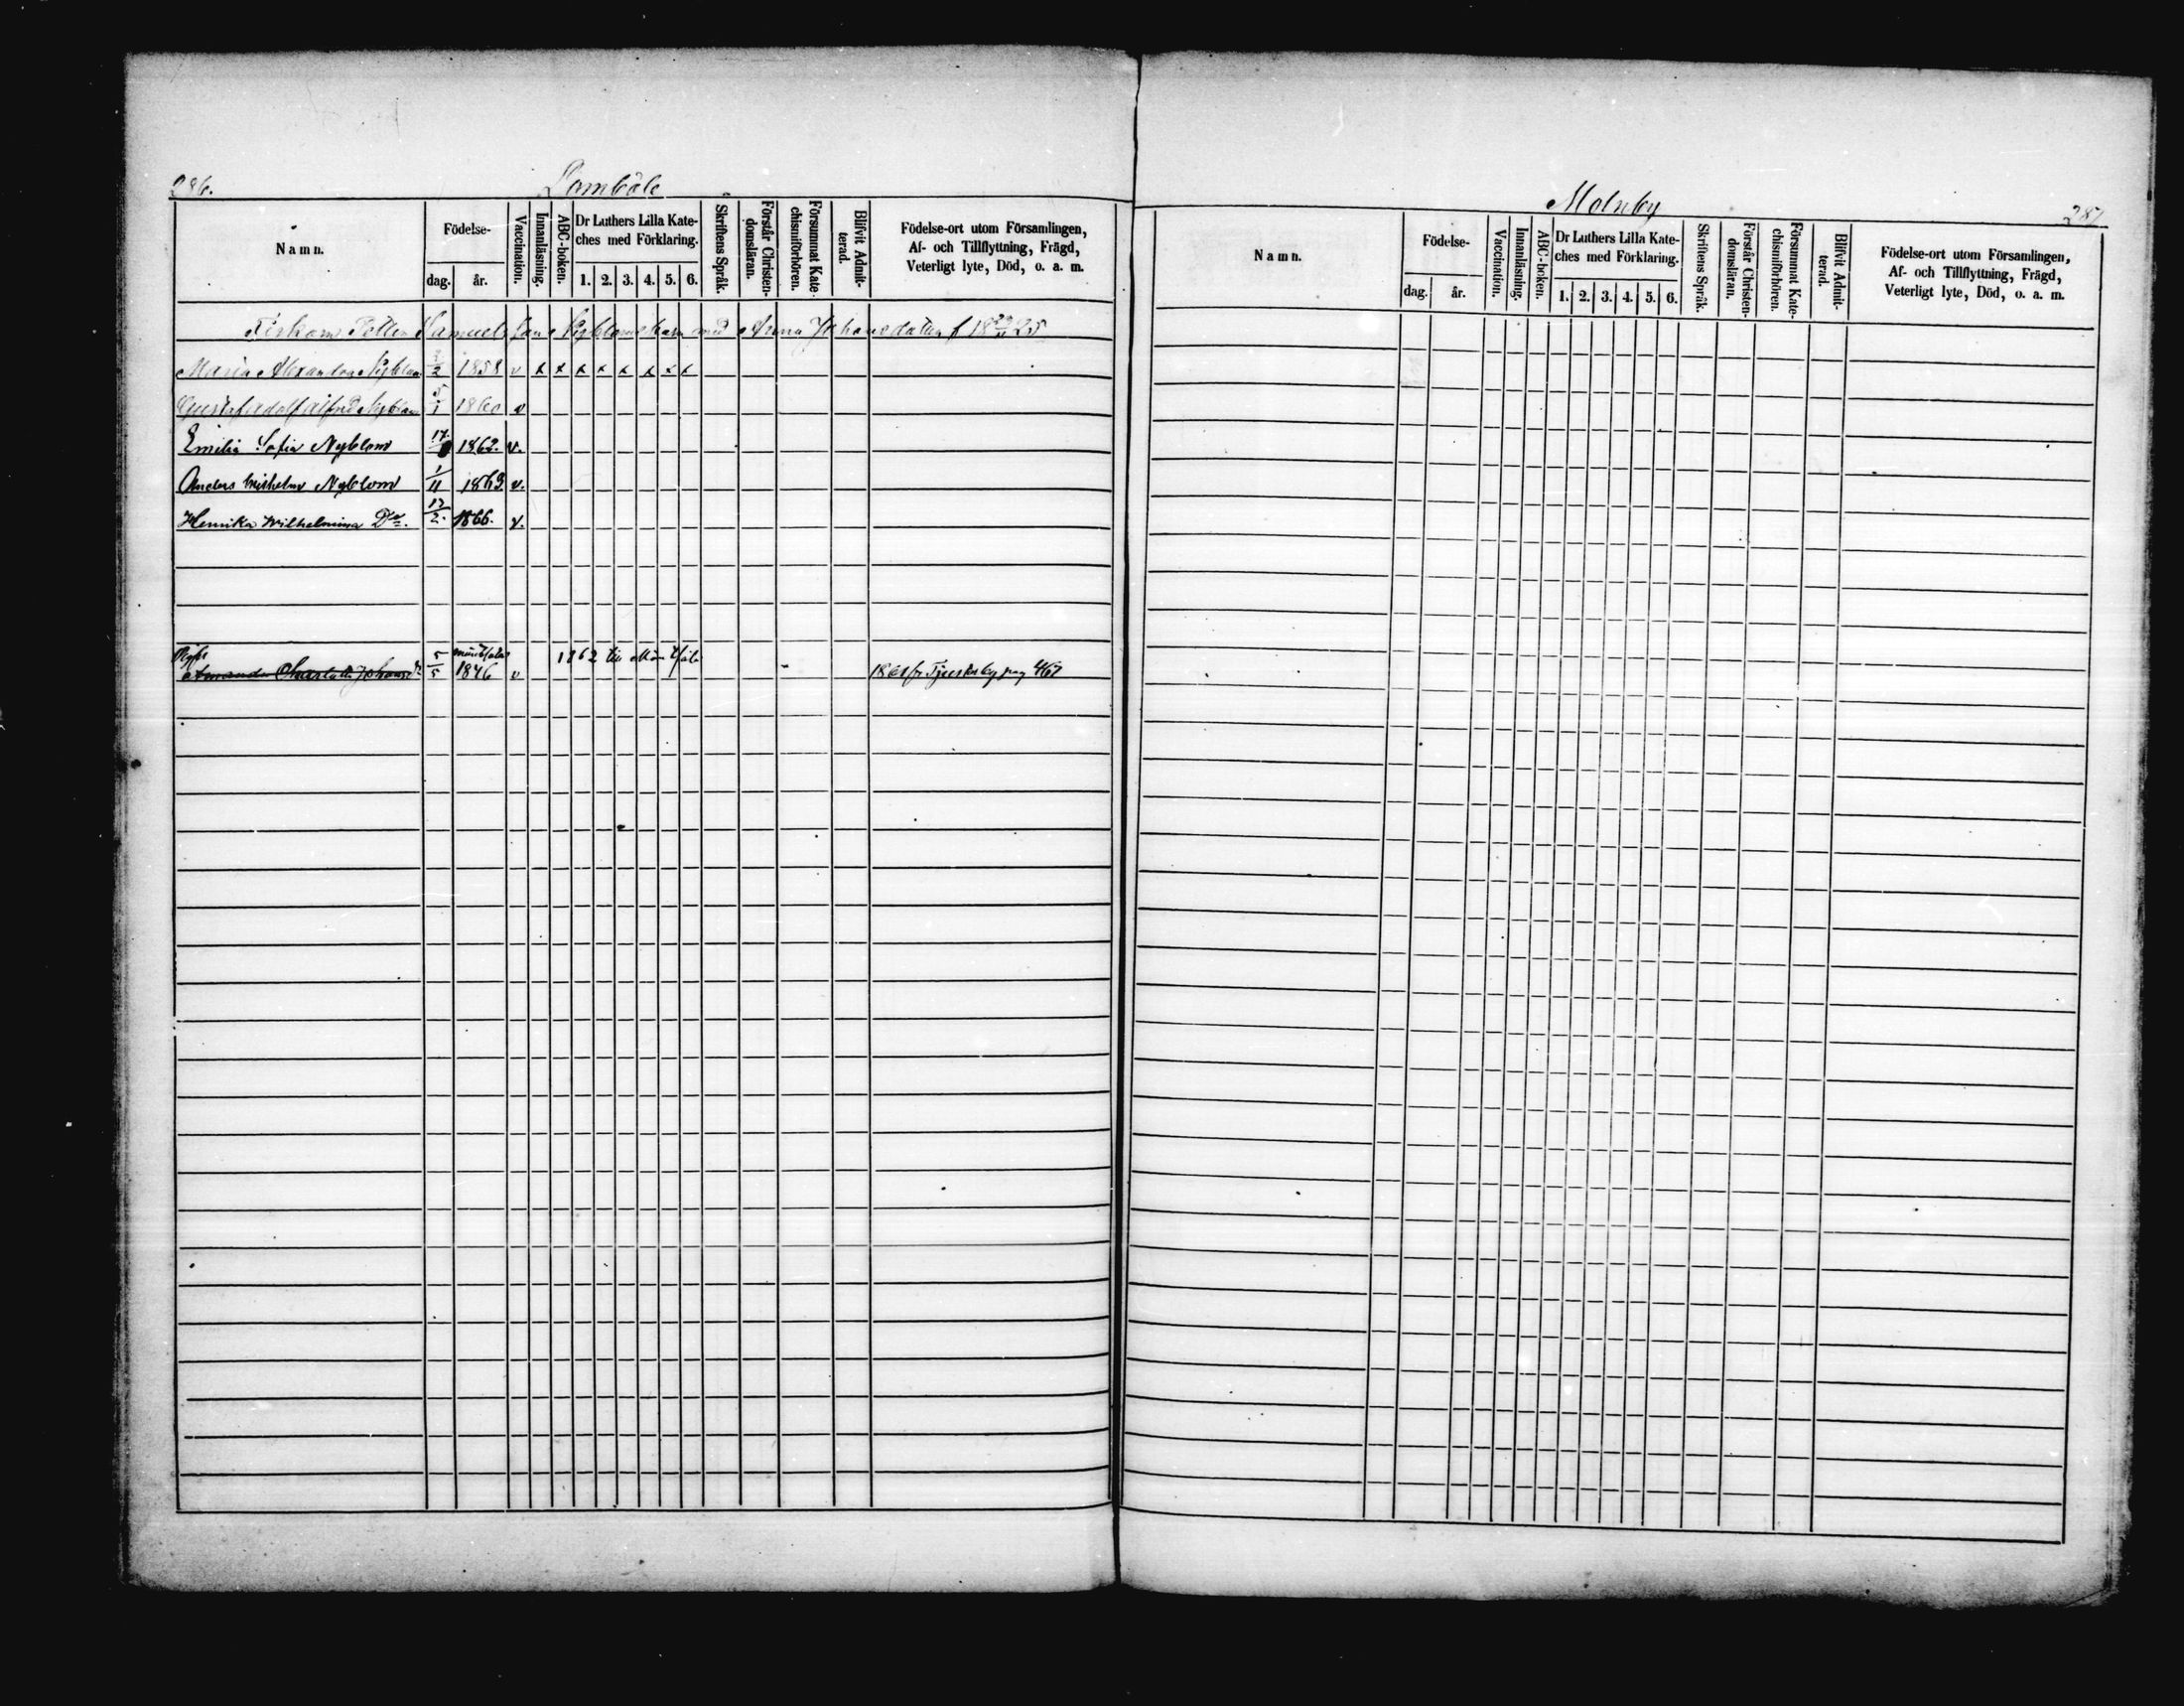 286.
Lamböle
Namn.
Födelse-
dag.
år.
Vaccination.
Innanläsning.
ABC-boken.
Dr Luthers Lilla Kate-
ches med Förklaring.
1. 2. 3. 4. 5. 6.
Skriftens Språk.
Förstår Christen-
domsläran.
Försummat Kate-
chismiförhören.
Blifvit Admit-
terad.
Födelse-ort utom Församlingen,
Af- och Tillflyttning, Frägd,
Veterligt lyte, Död, o. a. m.
Samuels son Nybloms barn med Anna Johansdotter f 18 25
Maria Alexandra Nyblom 2 1858 v x x x x x x x x
Gustaf Adolf Alfred Nyblom 5/1 1860 v
Emilia Sofia Nyblom 17 1862. v.
Anders Wilhelm Nyblom 1/11 1863 v.
Henrika Wilhelmina Do. 12/2. 1866. v.
1862 till
Amanda Charlotta Johansdr 5/5 1846 v 1861 fr Tjusterby pag 467
Molnby
287
Namn.
Födelse-
dag.
år.
Vaccination.
Innanläsning.
ABC-boken.
Dr Luthers Lilla Kate-
ches med Förklaring.
1. 2. 3. 4. 5. 6.
Skriftens Språk.
Förstår Christen-
domsläran.
Försummat Kate-
chismiförhören.
Blifvit Admit-
terad.
Födelse-ort utom Församlingen,
Af- och Tillflyttning, Frägd,
Veterligt lyte, Död, o. a. m.